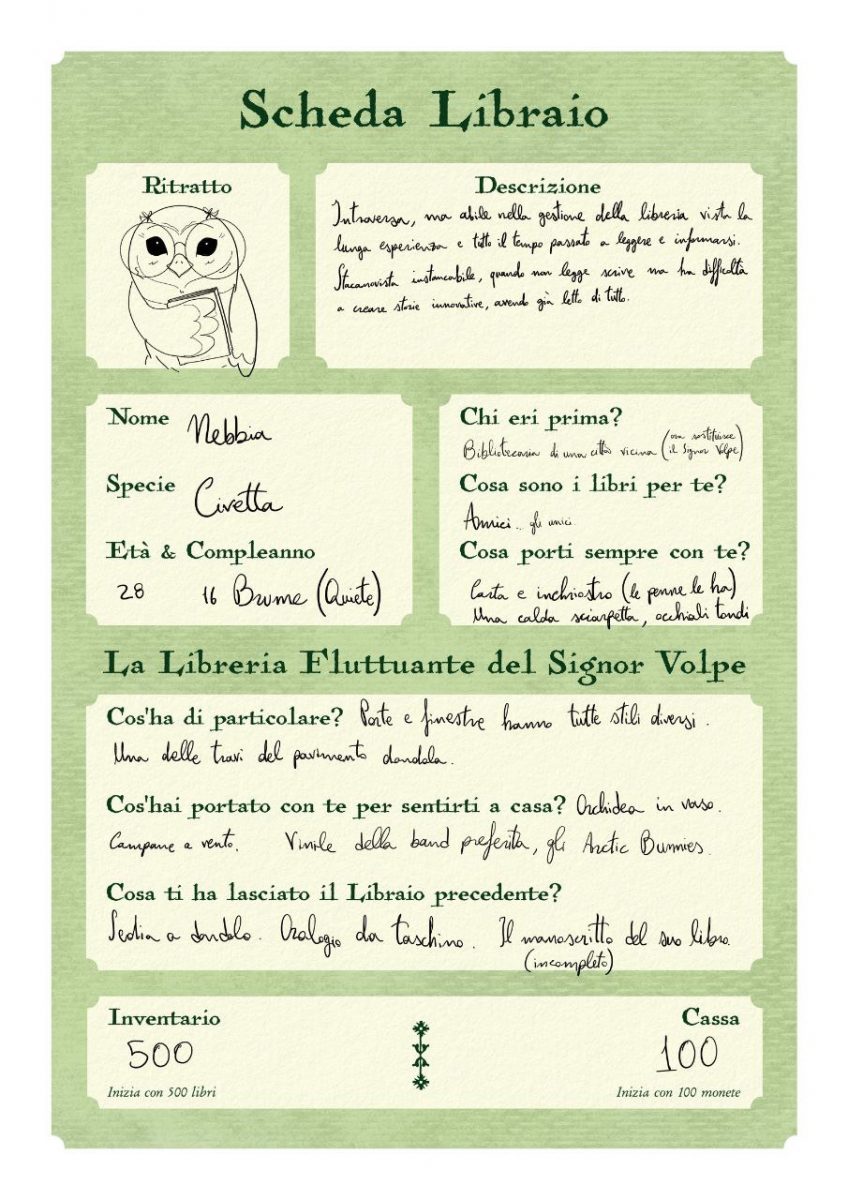 Scheda Libraio
Ritratto
Descrizione
Introversa, ma abile nella gestione della libreria vista la
lunga esperienza e tutto il tempo passato a leggere e informarsi.
Stacanovista instancabile, quando non legge scrive ma ha difficoltà
a creare storie innovative, avendo già letto di tutto.
Nome Nebbia
Specie Civetta
Età & Compleanno
28 16 Brume (Quiete)
Chi eri prima?
Bibliotecaria di una città vicina (ora sostituisce
il Signor Volpe)
Cosa sono i libri per te?
Amici.. gli unici.
Cosa porti sempre con te?
Carta e inchiostro (le penne le ha)
Una calda sciarpetta, occhiali tondi
La Libreria Fluttuante del Signor Volpe
Cos'ha di particolare? Porte e finestre hanno tutte stili diversi.
Una delle travi del pavimento dondola.
Cos'hai portato con te per sentirti a casa? Orchidea in vaso.
Campane a vento. Vinile della band preferita, gli Arctic Bunnies.
Cosa ti ha lasciato il Libraio precedente?
Sedia a dondolo. Orologio da taschino. Il manoscritto del suo libro.
(incompleto)
Inventario
500
Inizia con 500 libri
Cassa
100
Inizia con 100 monete